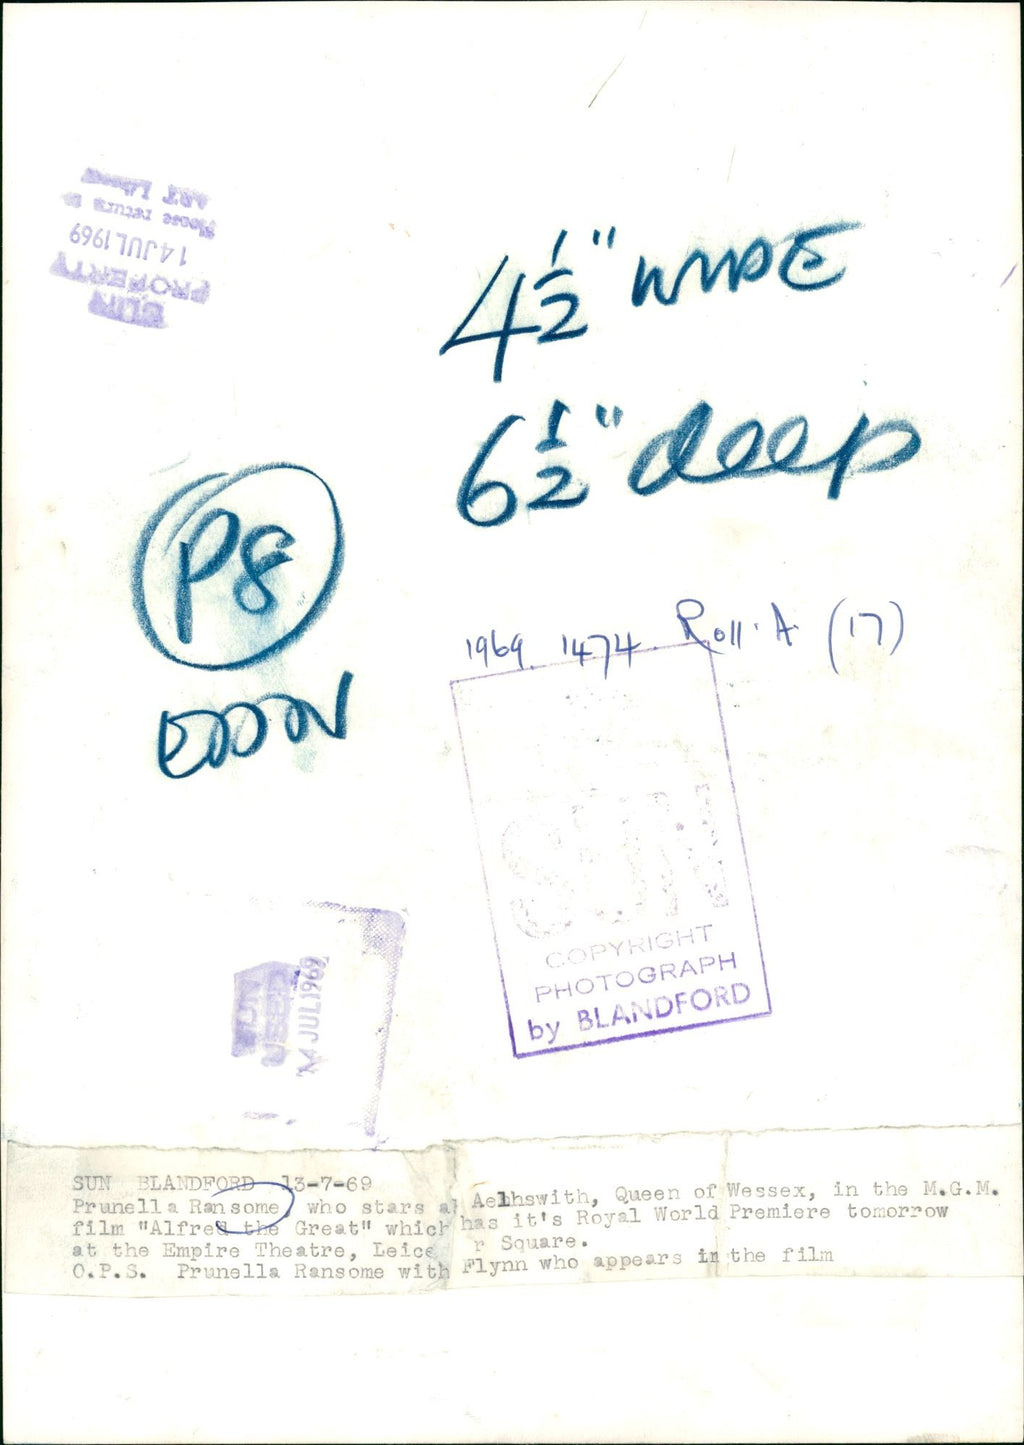 Please return to
14 JUL 1969
PROPERTY
SUN
4½" WIDE
6½" deep
P8
1969 1474 Roll. A (17)
SUN
COPYRIGHT
PHOTOGRAPH
by BLANDFORD
SUN
USED
14 JUL 1969
SUN BLANDFORD 13-7-69
Prunella Ransome who stars a Aelhswith, Queen of Wessex, in the M.G.M.
film "Alfred the Great" which has it's Royal World Premiere tomorrow
at the Empire Theatre, Leice r Square.
O.P.S. Prunella Ransome with Flynn who appears in the film